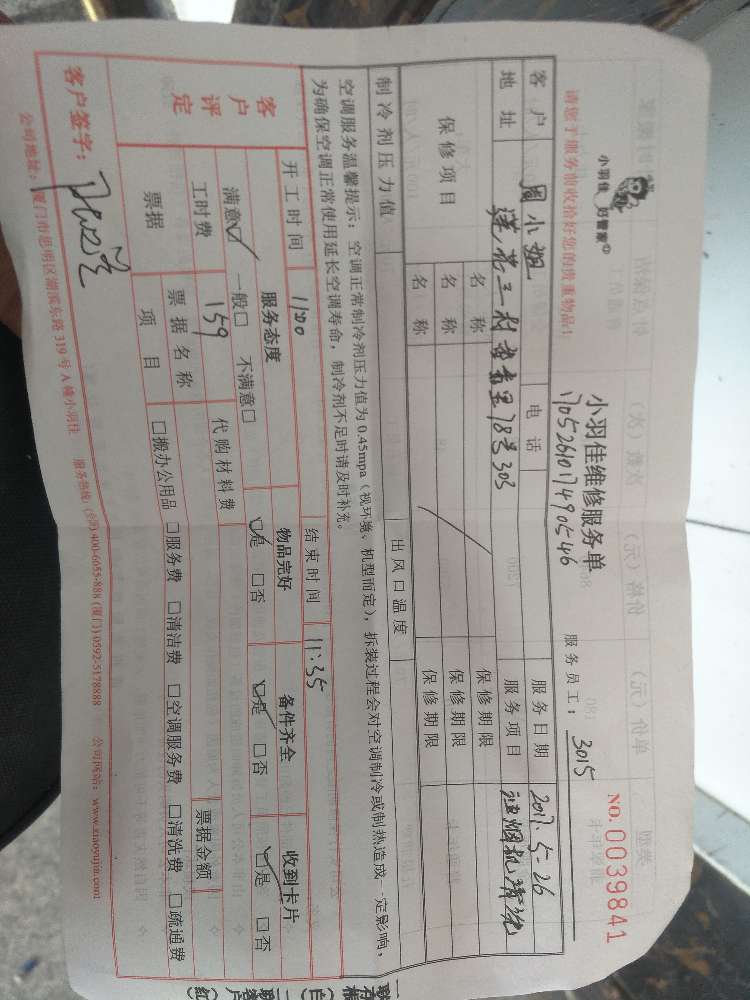 小羽佳 好管家
小羽佳维修服务单
NO.0039841
170526101749 0546
服务员工：3015
请您于服务前收拾好您的贵重物品！
客户 周小姐 电话 服务日期 2017.5-26
地址 莲花三村 78号303 服务项目 油烟机清洗
保修项目 名称 保修期限
名称 保修期限
名称 保修期限
制冷剂压力值 出风口温度
空调服务温馨提示：空调正常制冷剂压力值为0.45mpa（视环境、机型而定），拆装过程会对空调制冷或制热造成一定影响，
为确保空调正常使用延长空调寿命，制冷剂不足时请及时补充。
开工时间 1100 结束时间 11:35
客户评定 服务态度 物品完好 备件齐全 收到卡片
满意☑ 一般□ 不满意□ ☑是 □否 ☑是 □否 ☑是 □否
工时费 159 代购材料费
票据 票据名称 票据金额
项目 □搬办公用品 □服务费 □清洁费 □空调服务费 □清洗费 □疏通费
客户签字：
公司地址：厦门市思明区湖滨东路319号A幢小羽佳 服务热线：(全国)400-6655-888 (厦门)0592-5178888 公司网站：www.xiaoyujia.com